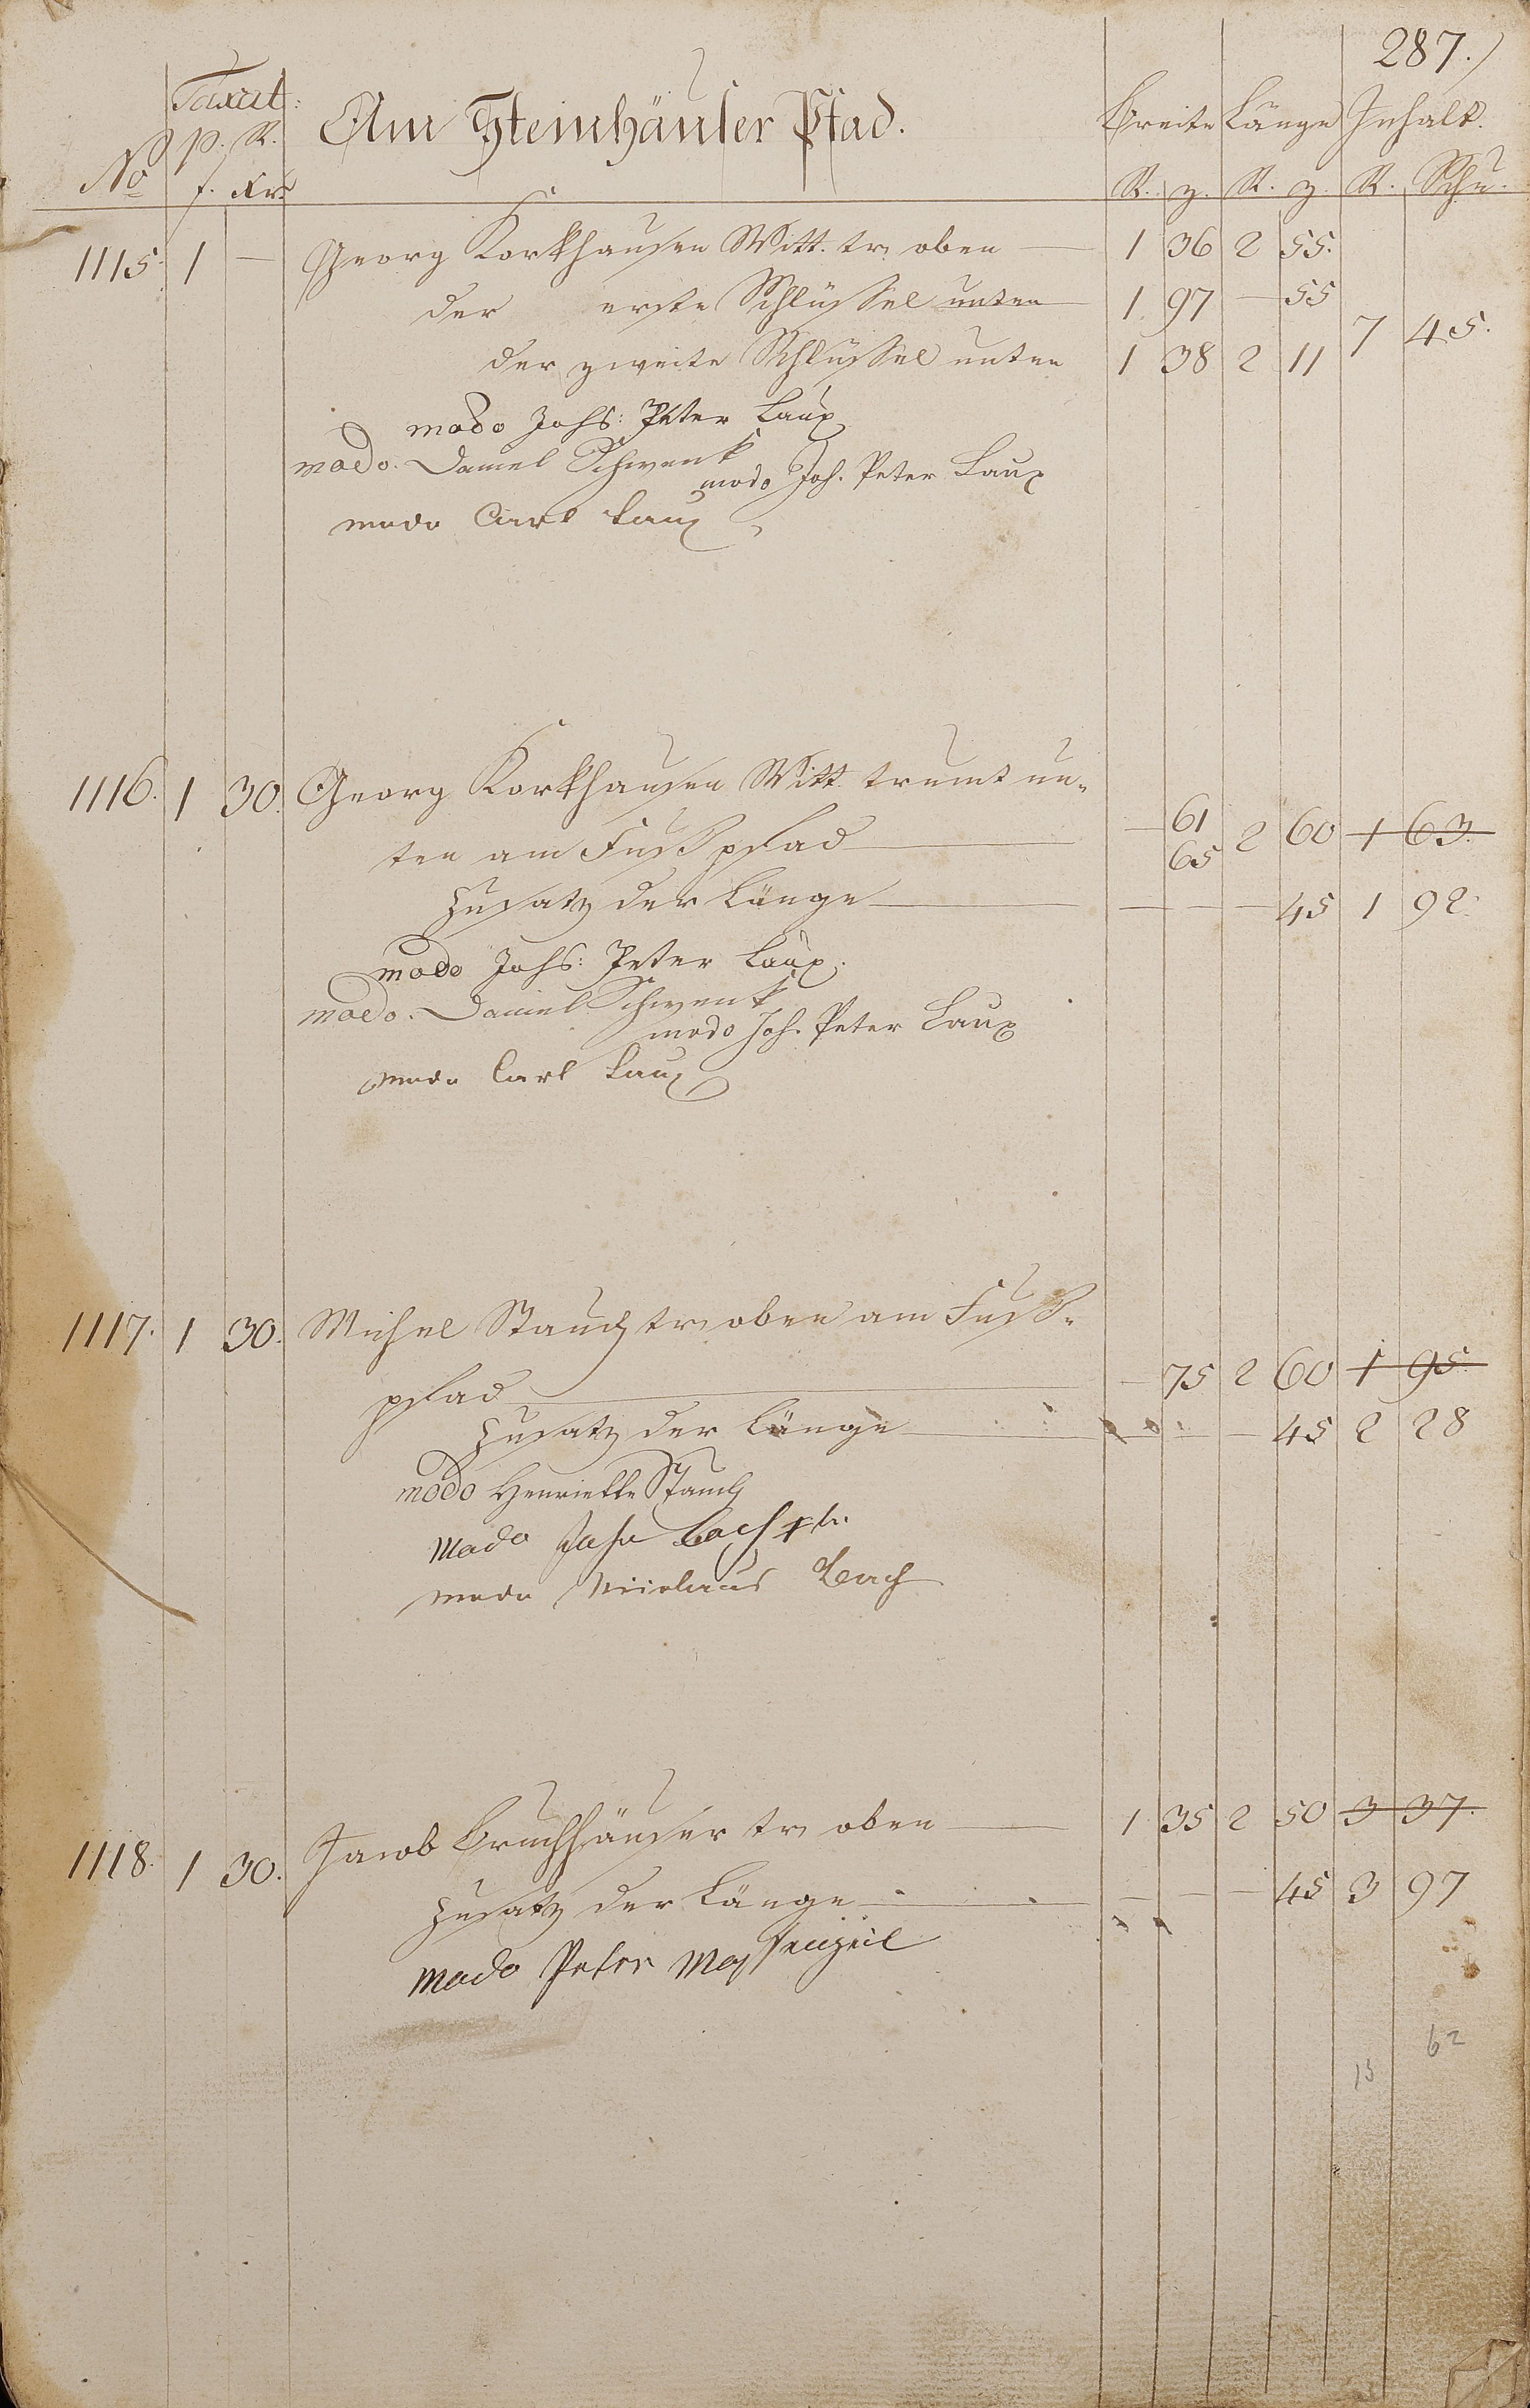 287.)
Taxat:
No P. R. Am Steinhäuser Pfad. Breite Länge Inhalt.
f. Xr. R. z. R. z. R. Schu.
1115. 1 — Georg Korkhausen Witt. tr. oben — 1 36 2 55.
der erste Schlüssel unten — 1. 97 — 55
7 45.
der zweite Schlüssel unten 1 38 2 11
modo Johs: Peter Laux
modo. Daniel Schwenk
modo Joh. Peter Laux
modo Carl Laux
1116. 1 30. Georg Korkhausen Witt. trumt un-
ten am Fußpfad — — 61 2 60 1 63.
65
Zusatz der Länge — — — — 45 1 92.
modo Johs: Peter Laux.
modo. Daniel Schwenk
modo Joh. Peter Laux
modo Carl Laux
1117. 1 30. Michel Stauch tr. oben am Fuß-
pfad — — 75 2 60 1 95.
Zusatz der Länge — — — — 45 2 28
modo Henriette Stauch
modo John Bach
modo Nicolaus Bach
1118. 1 30. Jacob Bruchhäuser tr. oben — 1 35 2 50 3 37.
Zusatz der Länge — — — — 45 3 97
modo Peter
62
15